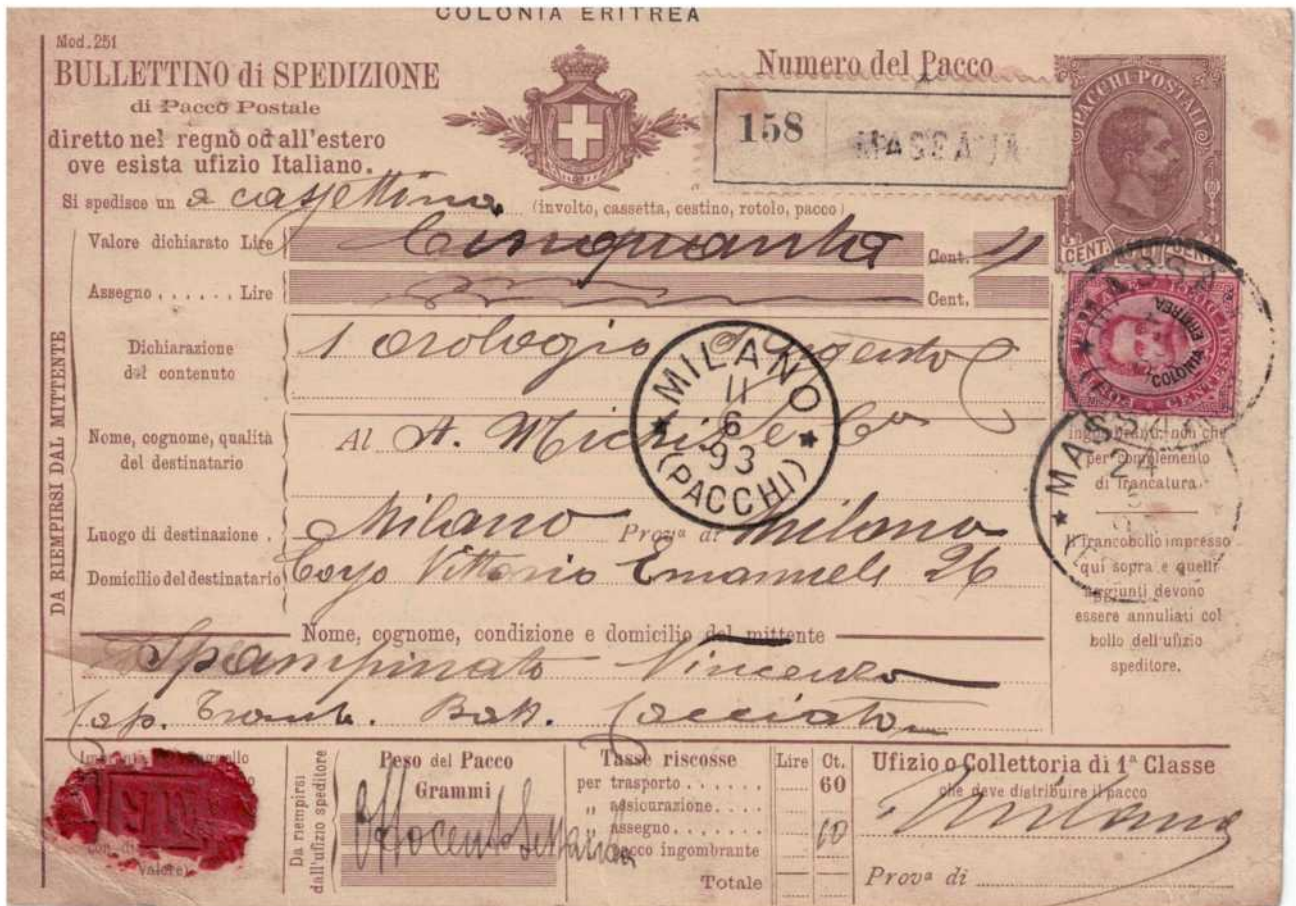 COLONIA ERITREA
Mod. 251
BULLETTINO di SPEDIZIONE
di Pacco Postale
diretto nel regno od all'estero
ove esista ufizio Italiano.
Numero del Pacco
158 MASSAUA
PACCHI POSTALI
CENT. CENT.
Si spedisce un a cassettina (involto, cassetta, cestino, rotolo, pacco)
DA RIEMPIRSI DAL MITTENTE
Valore dichiarato Lire Cinquanta Cent.
Assegno . . . . . . Lire Cent.
COLONIA ERITREA
Dichiarazione
del contenuto
1 Orologio d'argento
MILANO
11
6
93
(PACCHI)
Nome, cognome, qualità
del destinatario
Al A.
ingombranti, non che
per complemento
di francatura.
MASSAUA
24
5
Luogo di destinazione . Milano Provª di Milano
Domicilio del destinatario Corso Vittorio Emanuele 26
Il francobollo impresso
qui sopra e quelli
aggiunti devono
essere annullati col
bollo dell'ufizio
speditore.
Nome, cognome, condizione e domicilio del mittente
Spampinato Vincenzo
Cap. Batt. Cacciatori
valore)
Da riempirsi
dall'ufizio speditore
Peso del Pacco
Grammi
Ottocentosettanta
Tasse riscosse Lire Ct.
per trasporto . . . . . . 60
„ assicurazione. . . .
„ assegno . . . . . . . 10
pacco ingombrante
Totale
Ufizio o Collettoria di 1ª Classe
che deve distribuire il pacco
Milano
Provª di